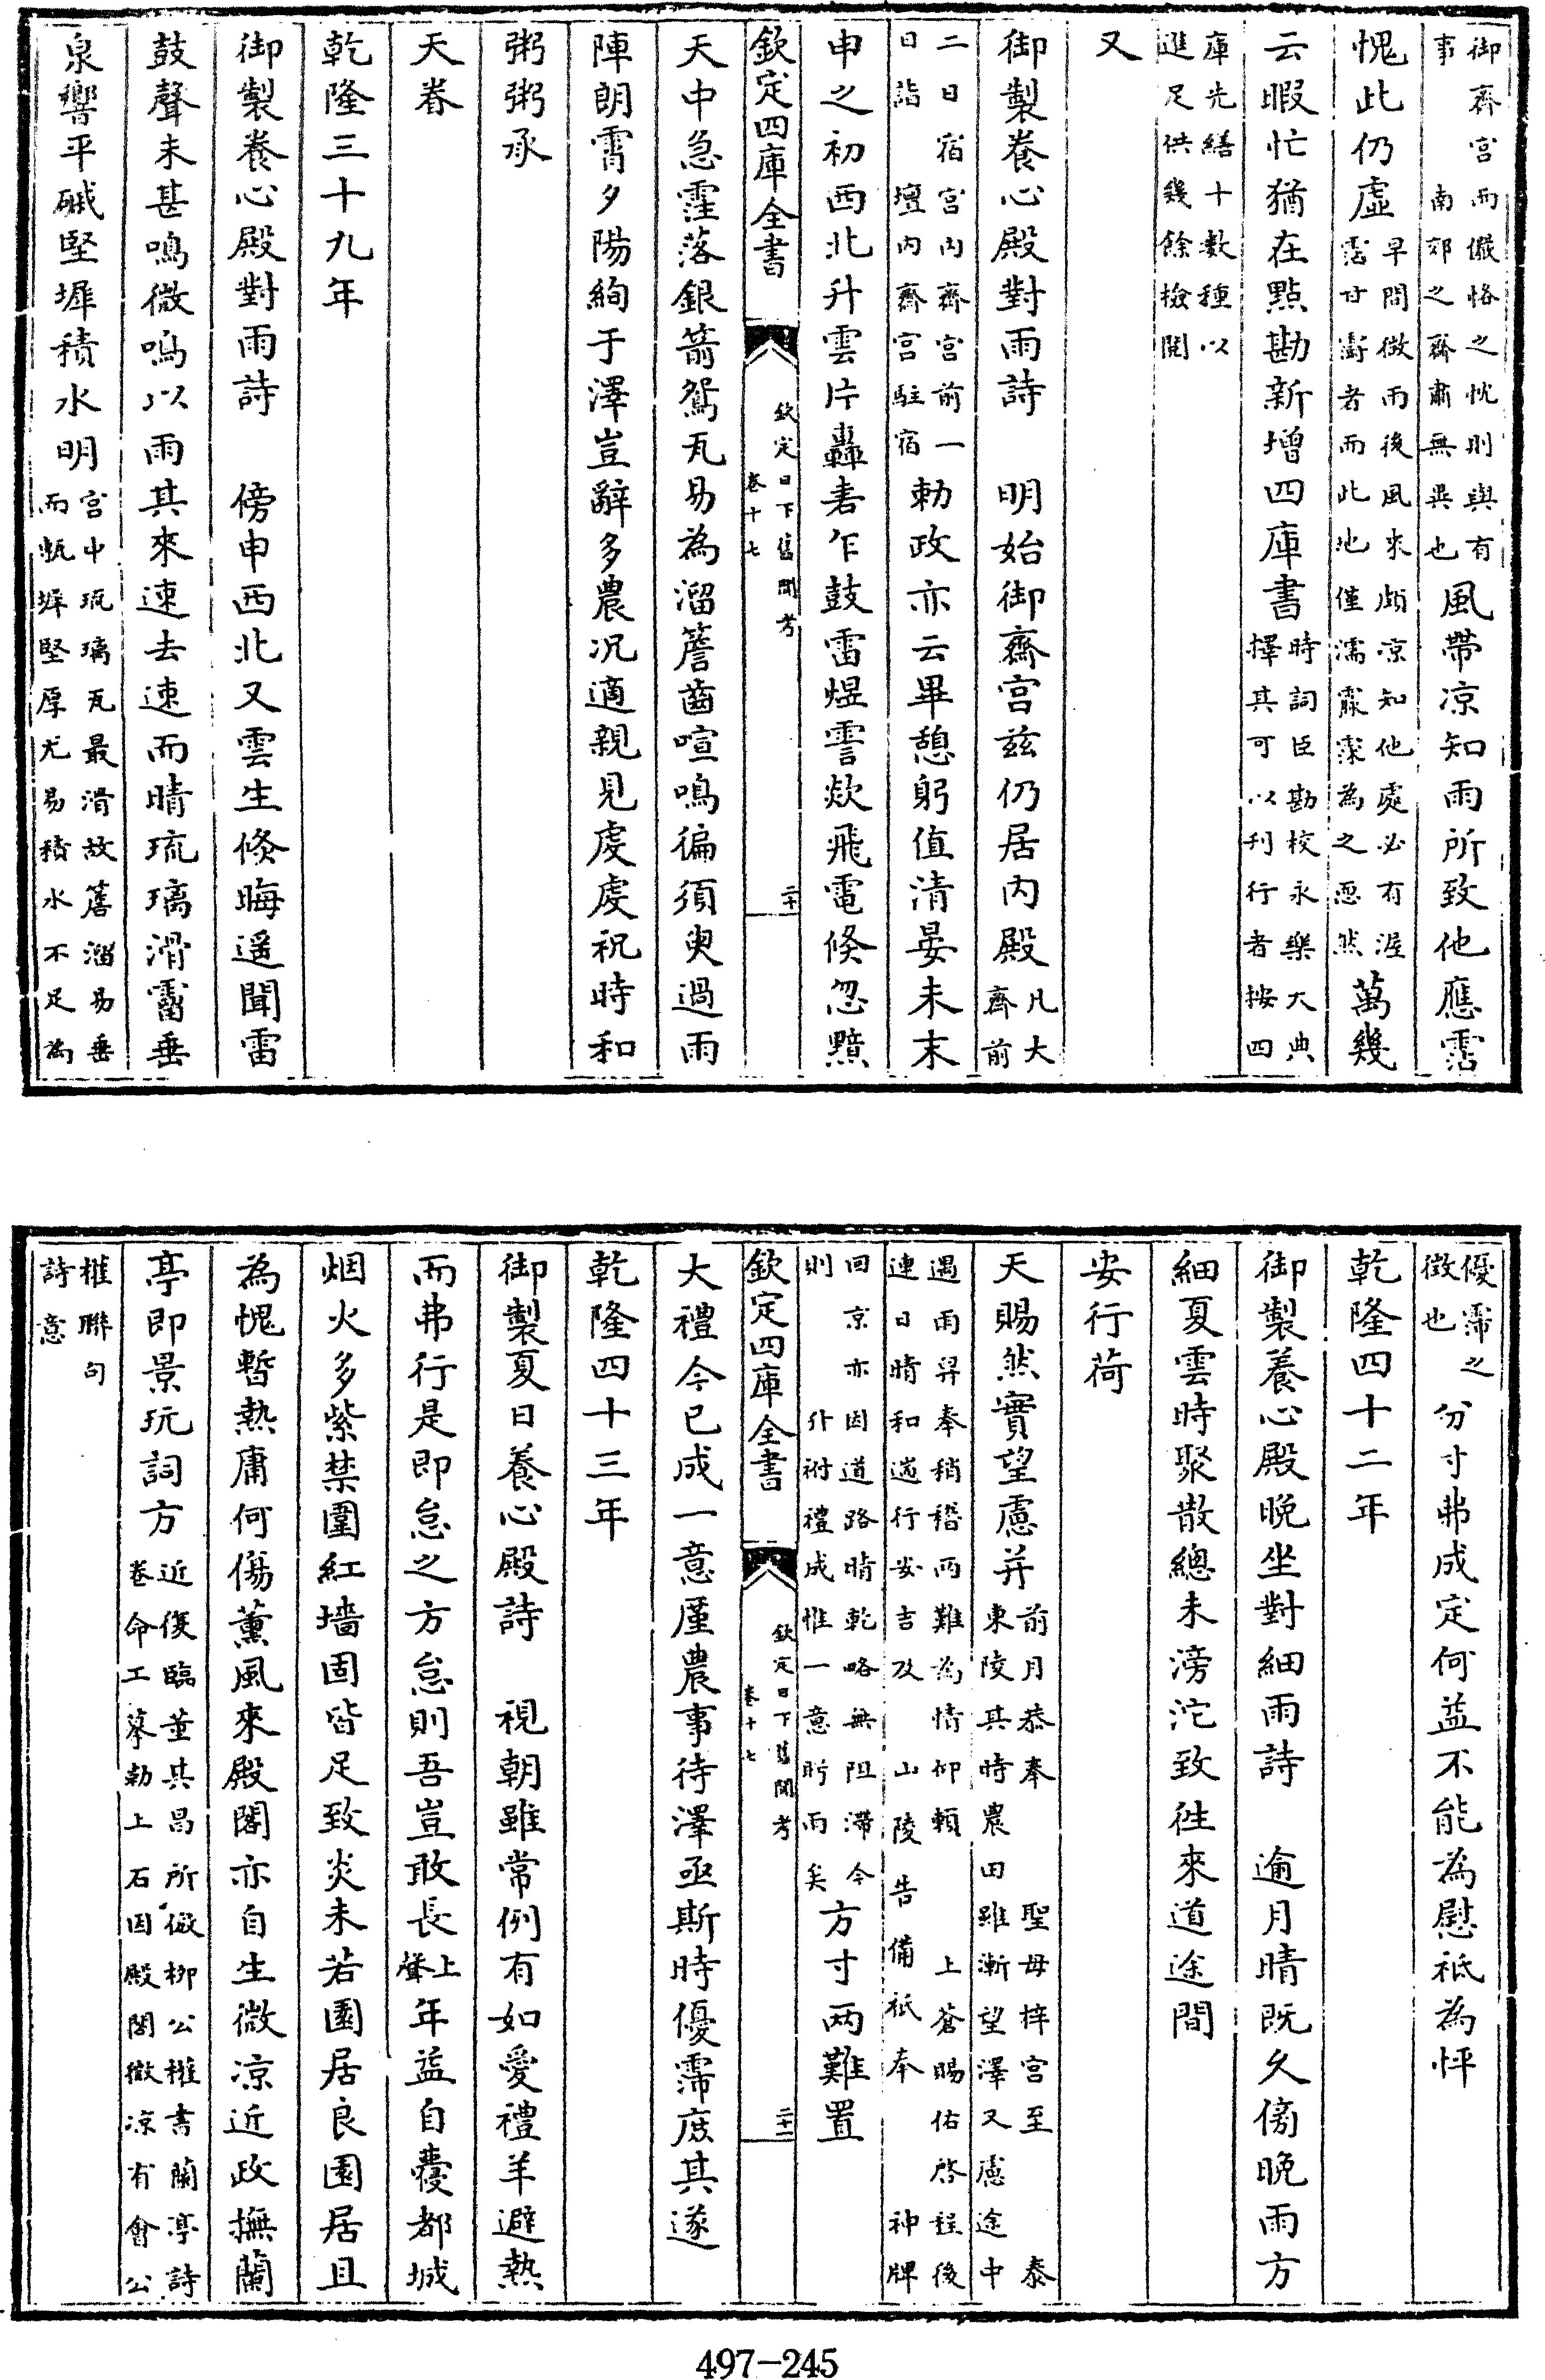 御齋宮而儼恪之忱則與有
事南郊之齋肅無異也風帶凉知雨所致他應霑
愧此仍虛早間微雨後風來頗凉知他處必有渥
霑甘澍者而此地僅濡霡霂為之恧然萬幾
云暇忙猶在點勘新增四庫書時詞臣勘校永樂大典
擇其可以刋行者按四
庫先繕十數種以
進足供幾餘檢閲
又
御製養心殿對雨詩　明始御齋宮兹仍居内殿凡大
齋前
二日宿宮内齋宮前一
日詣壇内齋宮駐宿勅政亦云畢憩躬值清晏未末
申之初西北升雲片轟砉乍鼓雷煜霅欻飛電倐忽黯
欽定四庫全書　欽定日下舊聞考
卷十七　二十
天中急霔落銀箭鴛瓦易為溜簷齒喧鳴徧須臾過雨
陣朗霄夕陽絢于澤豈辭多農況適親見處處祝時和
粥粥承
天眷
乾隆三十九年
御製養心殿對雨詩　傍申西北又雲生倐晦遥聞雷
鼓聲未甚鳴微鳴以雨其來速去速而晴琉璃滑霤垂
泉響平磩堅墀積水明宮中琉璃瓦最滑故簷溜易垂
而甎墀堅厚尤易積水不足為
優霈之
徵也分寸弗成定何益不能為慰祗為怦
乾隆四十二年
御製養心殿晚坐對細雨詩　逾月晴既久傍晚雨方
細夏雲時聚散總未滂沱致徃來道途間
安行荷
天賜然實望慮并前月恭奉聖母梓宮至泰
東陵其時農田雖漸望澤又慮途中
遇雨舁奉稍稽兩難為情仰賴上蒼賜佑啓程後
連日晴和遄行安吉及山陵告備祇奉神牌
回京亦因道路晴乾略無阻滯今
則升祔禮成惟一意盻雨矣方寸兩難置
欽定四庫全書　欽定日下舊聞考
卷十七　二十一
大禮今已成一意廑農事待澤亟斯時優霈庶其遂
乾隆四十三年
御製夏日養心殿詩　視朝雖常例有如愛禮羊避熱
而弗行是即怠之方怠則吾豈敢長上聲年益自憂都城
烟火多紫禁圍紅墻固皆足致炎未若園居良園居且
為愧暫熱庸何傷薰風來殿閣亦自生微凉近政撫蘭
亭即景玩詞方近復臨董其昌所倣栁公權書蘭亭詩
卷命工摹勒上石因殿閣微凉有會公
權聯句
詩意
497-245